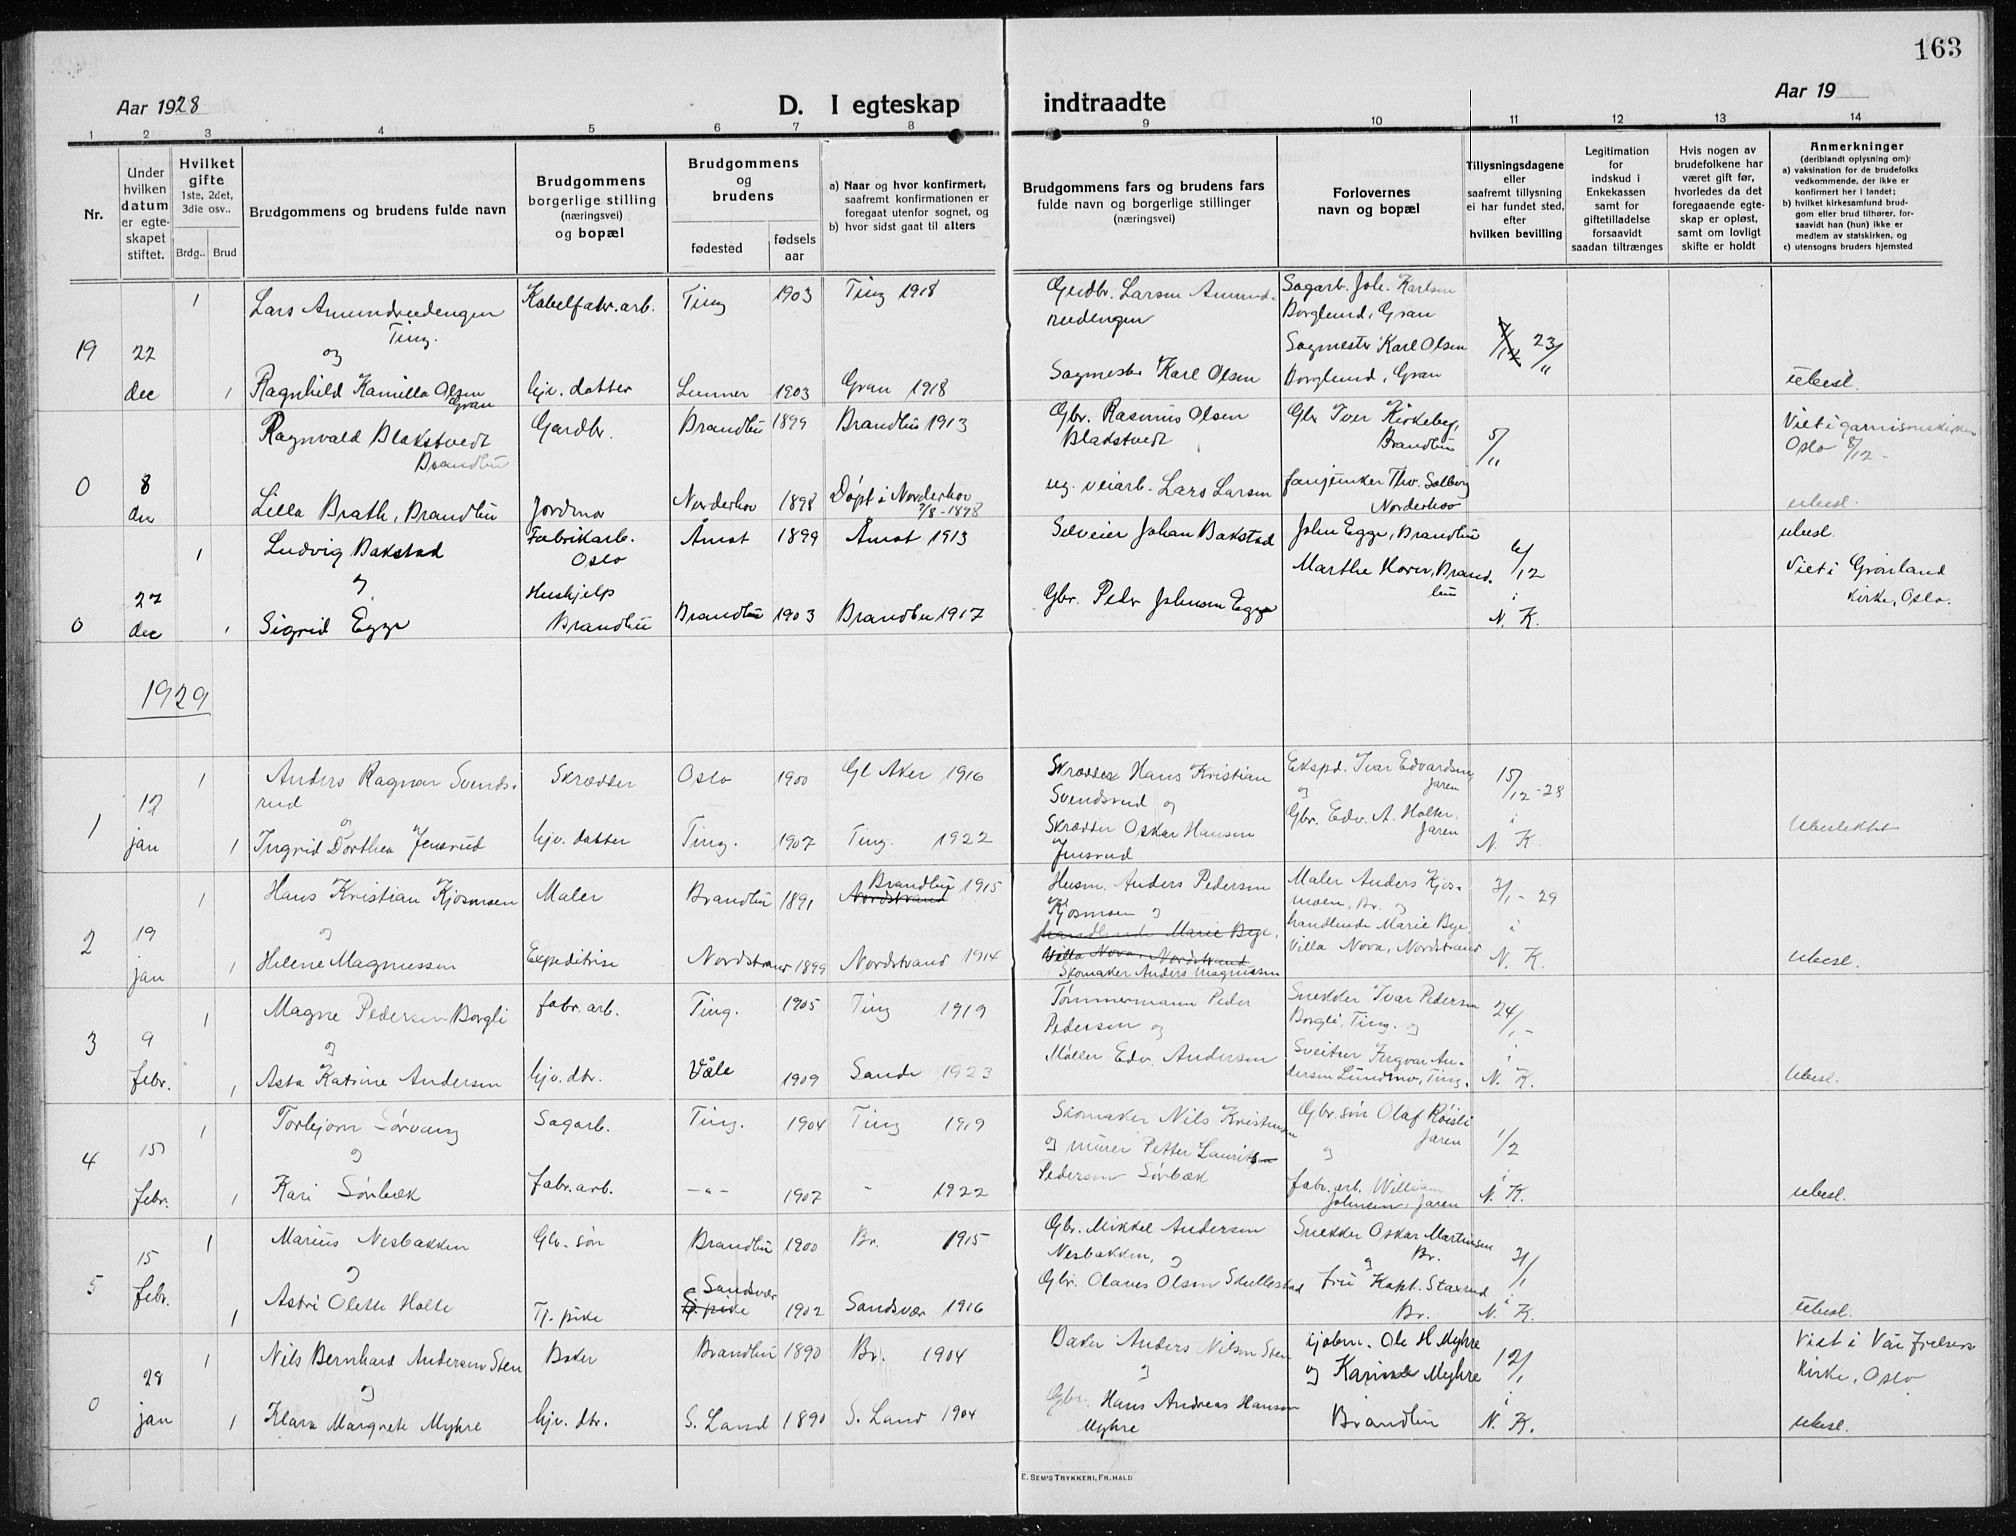 163
Aar 1928
D. I egteskap indtraadte
Aar 19
1 2 3 4 5 6 7 8 9 10 11 12 13 14
Nr.
Under hvilken datum er egte-skapet stiftet.
Hvilket gifte 1ste, 2det, 3die osv..
Brdg.. Brud
Brudgommens og brudens fulde navn
Brudgommens borgerlige stilling (næringsvei) og bopæl
Brudgommens og brudens
fødested
fødsels aar
a) Naar og hvor konfirmert, saafremt konfirmationen er foregaat utenfor sognet, og
b) hvor sidst gaat til alters
Brudgommens fars og brudens fars fulde navn og borgerlige stillinger (næringsvei)
Forlovernes navn og bopæl
Tillysningsdagene eller saafremt tillysning ei har fundet sted, efter hvilken bevilling
Legitimation for indskud i Enkekassen samt for giftetilladelse forsaavidt saadan tiltrænges
Hvis nogen av brudefolkene har været gift før, hvorledes da det foregaaende egte-skap er opløst, samt om lovligt skifte er holdt
Anmerkninger (deriblandt oplysning om):
a) vaksination for de brudefolks vedkommende, der ikke er konfirmert her i landet;
b) hvilket kirkesamfund brud-gom eller brud tilhører, for-saavidt han (hun) ikke er medlem av statskirken, og
c) utensogns bruders hjemsted
1 Lars Amundrudengen Kabelfabr.arb. Ting 1903 Ting 1918 Gudbr. Larsen Amund- Sagarb. Joh. Karlsen
Ting. rudengen Borglund, Gran
19 22 og Sagmester Karl Olsen 7/12 23/11
dec 1 Ragnhild Kamilla Olsen hjv. datter Lunner 1903 Gran 1918 Sagmester Karl Olsen Borglund, Gran ubesl.
Gran
Ragnvald Blakstvedt Gardbr. Brandbu 1899 Brandbu 1913 Gbr. Rasmus Olsen Gbr Iver Kirkeberg, Viet i garnisonskirken
Brandbu Blakstvedt Brandbu 5/11 Oslo 8/12 -
0 8 dec Lilla Brath, Brandbu Jordmor Norderhov 1898 Døpt i Norderhov ug. veiarb. Lars Larsen fanejunker Thv. Solberg
7/8-1898 Norderhov ubesl.
1 Ludvig Bakstad Fabrikarb. Åmot 1899 Åmot 1913 Selveier Johan Bakstad John Egge, Brandbu ubesl.
Oslo Marthe Horn, Brand- 6/12 Viet i Grønland
og Hushjelp bu i Kirke, Oslo.
0 27 dec 1 Sigrid Egge Brandbu Brandbu 1903 Brandbu 1917 Gbr. Peder Johnsen Egge N. K.
1929
1 Anders Ragnar Svends- Skrædder Oslo 1900 Gl Aker 1916 Skrædder Hans Kristian Ekspd. Ivar Edvardsen 15/12-28
rud Svendsrud og Jaren og
1 12 jan og Skrædder Oskar Hansen Gbr. Edv. A. Holter, i
1 Ingrid Dorthea Jensrud hjv. datter Ting. 1907 Ting. 1922 Jensrud Jaren N. K. Ubeslektet
1 Hans Kristian Kjosmoen Maler Brandbu 1891 Brandbu 1915 Husm. Anders Pedersen Maler Anders Kjos- 3/1-29
Nordstrand Kjosmoen og moen, Br. og
2 19 og handlende Marie Bye, handlende Marie Bye, i
jan 1 Helene Magnussen Expeditrise Nordstrand 1899 Nordstrand 1914 Villa Nova, Nordstrand Villa Nova, Nordstrand N. K. ubesl.
Skomaker Anders Magnussen
1 Magne Pedersen Borgli fabr.arb. Ting. 1905 Ting 1919 Tømmermann Peder Snekker Ivar Pedersen 24/1-
3 9 og Pedersen og Borgli, Ting. og i
febr. 1 Asta Katrine Andersen hjv. dtr. Våle 1909 Sande 1923 Møller Edv. Andersen Sveitser Ingvar An-
dersen Lundmo, Ting. N. K. ubesl.
1 Torbjørn Sørvang Sagarb. Ting. 1904 Ting 1919 Skomaker Nils Kristensen Gbr. søn Olaf Røisli
Jaren 1/2
4 15 og og murer Petter Lauritsen og i
febr. 1 Kari Sørbæk fabr.arb. -"- 1907 " 1922 Pedersen Sørbæk fabr.arb. William
Johnsen, Jaren N. K. ubesl.
1 Marius Nesbakken Gbr. søn Brandbu 1900 Br. 1915 Gbr. Mikkel Andersen Snekker Oskar Martinsen
Nesbakken, og Br. 31/1
5 15 febr. og Sandsvær Gbr. Olaves Olsen Skullestad og Fru Kapt. Staxrud i
1 Astri Olette Holte Tj. pike Tj. pike 1902 Sandsvær 1916 Br. N. K. ubesl.
1 Nils Bernhard Andersen Sten Baker Brandbu 1890 Br. 1904 Baker Anders Nilsen Sten Kjøbm. Ole H Myhre Viet i Vår Frelsers
0 28 og og og Karine Myhre 12/1 Kirke, Oslo
jan 1 Klara Margrete Myhre hjv. dtr. S. Land 1890 S. Land 1904 Gbr. Hans Andreas Hansen i
Myhre Brandbu N. K. ubesl.
E. SEM'S TRYKKERI, FR.HALD